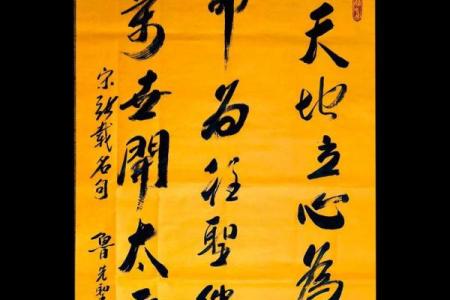 天地立心為
命為往聖繼
萬世開太平
宋張載名句
魯先聖